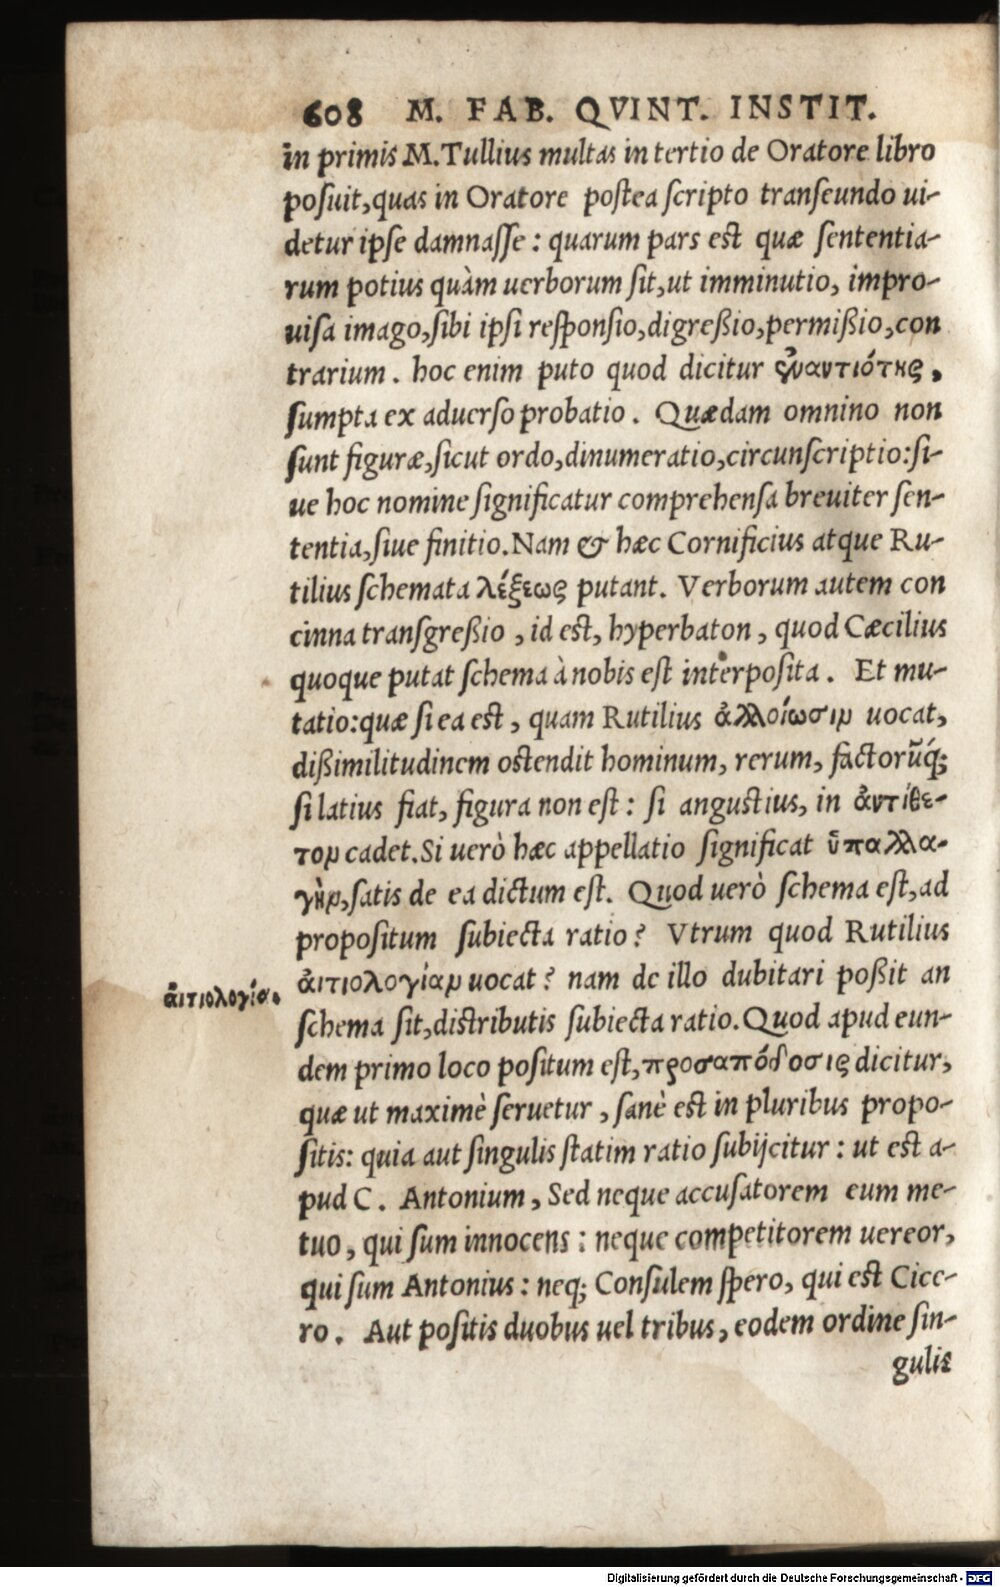 608 M. FAB. QVINT. INSTIT.
in primis M. Tullius multas in tertio de Oratore libro
posuit, quas in Oratore postea scripto transeundo ui-
detur ipse damnasse : quarum pars est quæ sententia-
rum potius quàm uerborum sit, ut imminutio, impro-
uisa imago, sibi ipsi responsio, digreßio, permißio, con
trarium . hoc enim puto quod dicitur ἐναντιότης,
sumpta ex aduerso probatio . Quædam omnino non
sunt figuræ, sicut ordo, dinumeratio, circunscriptio: si-
ue hoc nomine significatur comprehensa breuiter sen-
tentia, siue finitio. Nam & hæc Cornificius atque Ru-
tilius schemata λέξεως putant. Verborum autem con
cinna transgreßio , id est, hyperbaton , quod Cæcilius
quoque putat schema à nobis est interposita . Et mu-
tatio: quæ si ea est , quam Rutilius ἀλλοίωσιν uocat,
dißimilitudinem ostendit hominum, rerum, factorũq́;
si latius fiat, figura non est : si angustius, in ἀντίθε-
τον cadet. Si uerò hæc appellatio significat ὑπαλλα-
γὴν, satis de ea dictum est. Quod uerò schema est, ad
propositum subiecta ratio? Vtrum quod Rutilius
ἀιτιολογίαν uocat? nam de illo dubitari poßit an
ἀιτιολογία.
schema sit, distributis subiecta ratio. Quod apud eun-
dem primo loco positum est, προσαπόδοσις dicitur,
quæ ut maximè seruetur , sanè est in pluribus propo-
sitis: quia aut singulis statim ratio subijcitur : ut est a-
pud C. Antonium , Sed neque accusatorem eum me-
tuo , qui sum innocens : neque competitorem uereor,
qui sum Antonius : neq; Consulem spero, qui est Cice-
ro . Aut positis duobus uel tribus, eodem ordine sin-
gulis
Digitalisierung gefördert durch die Deutsche Forschungsgemeinschaft - DFG